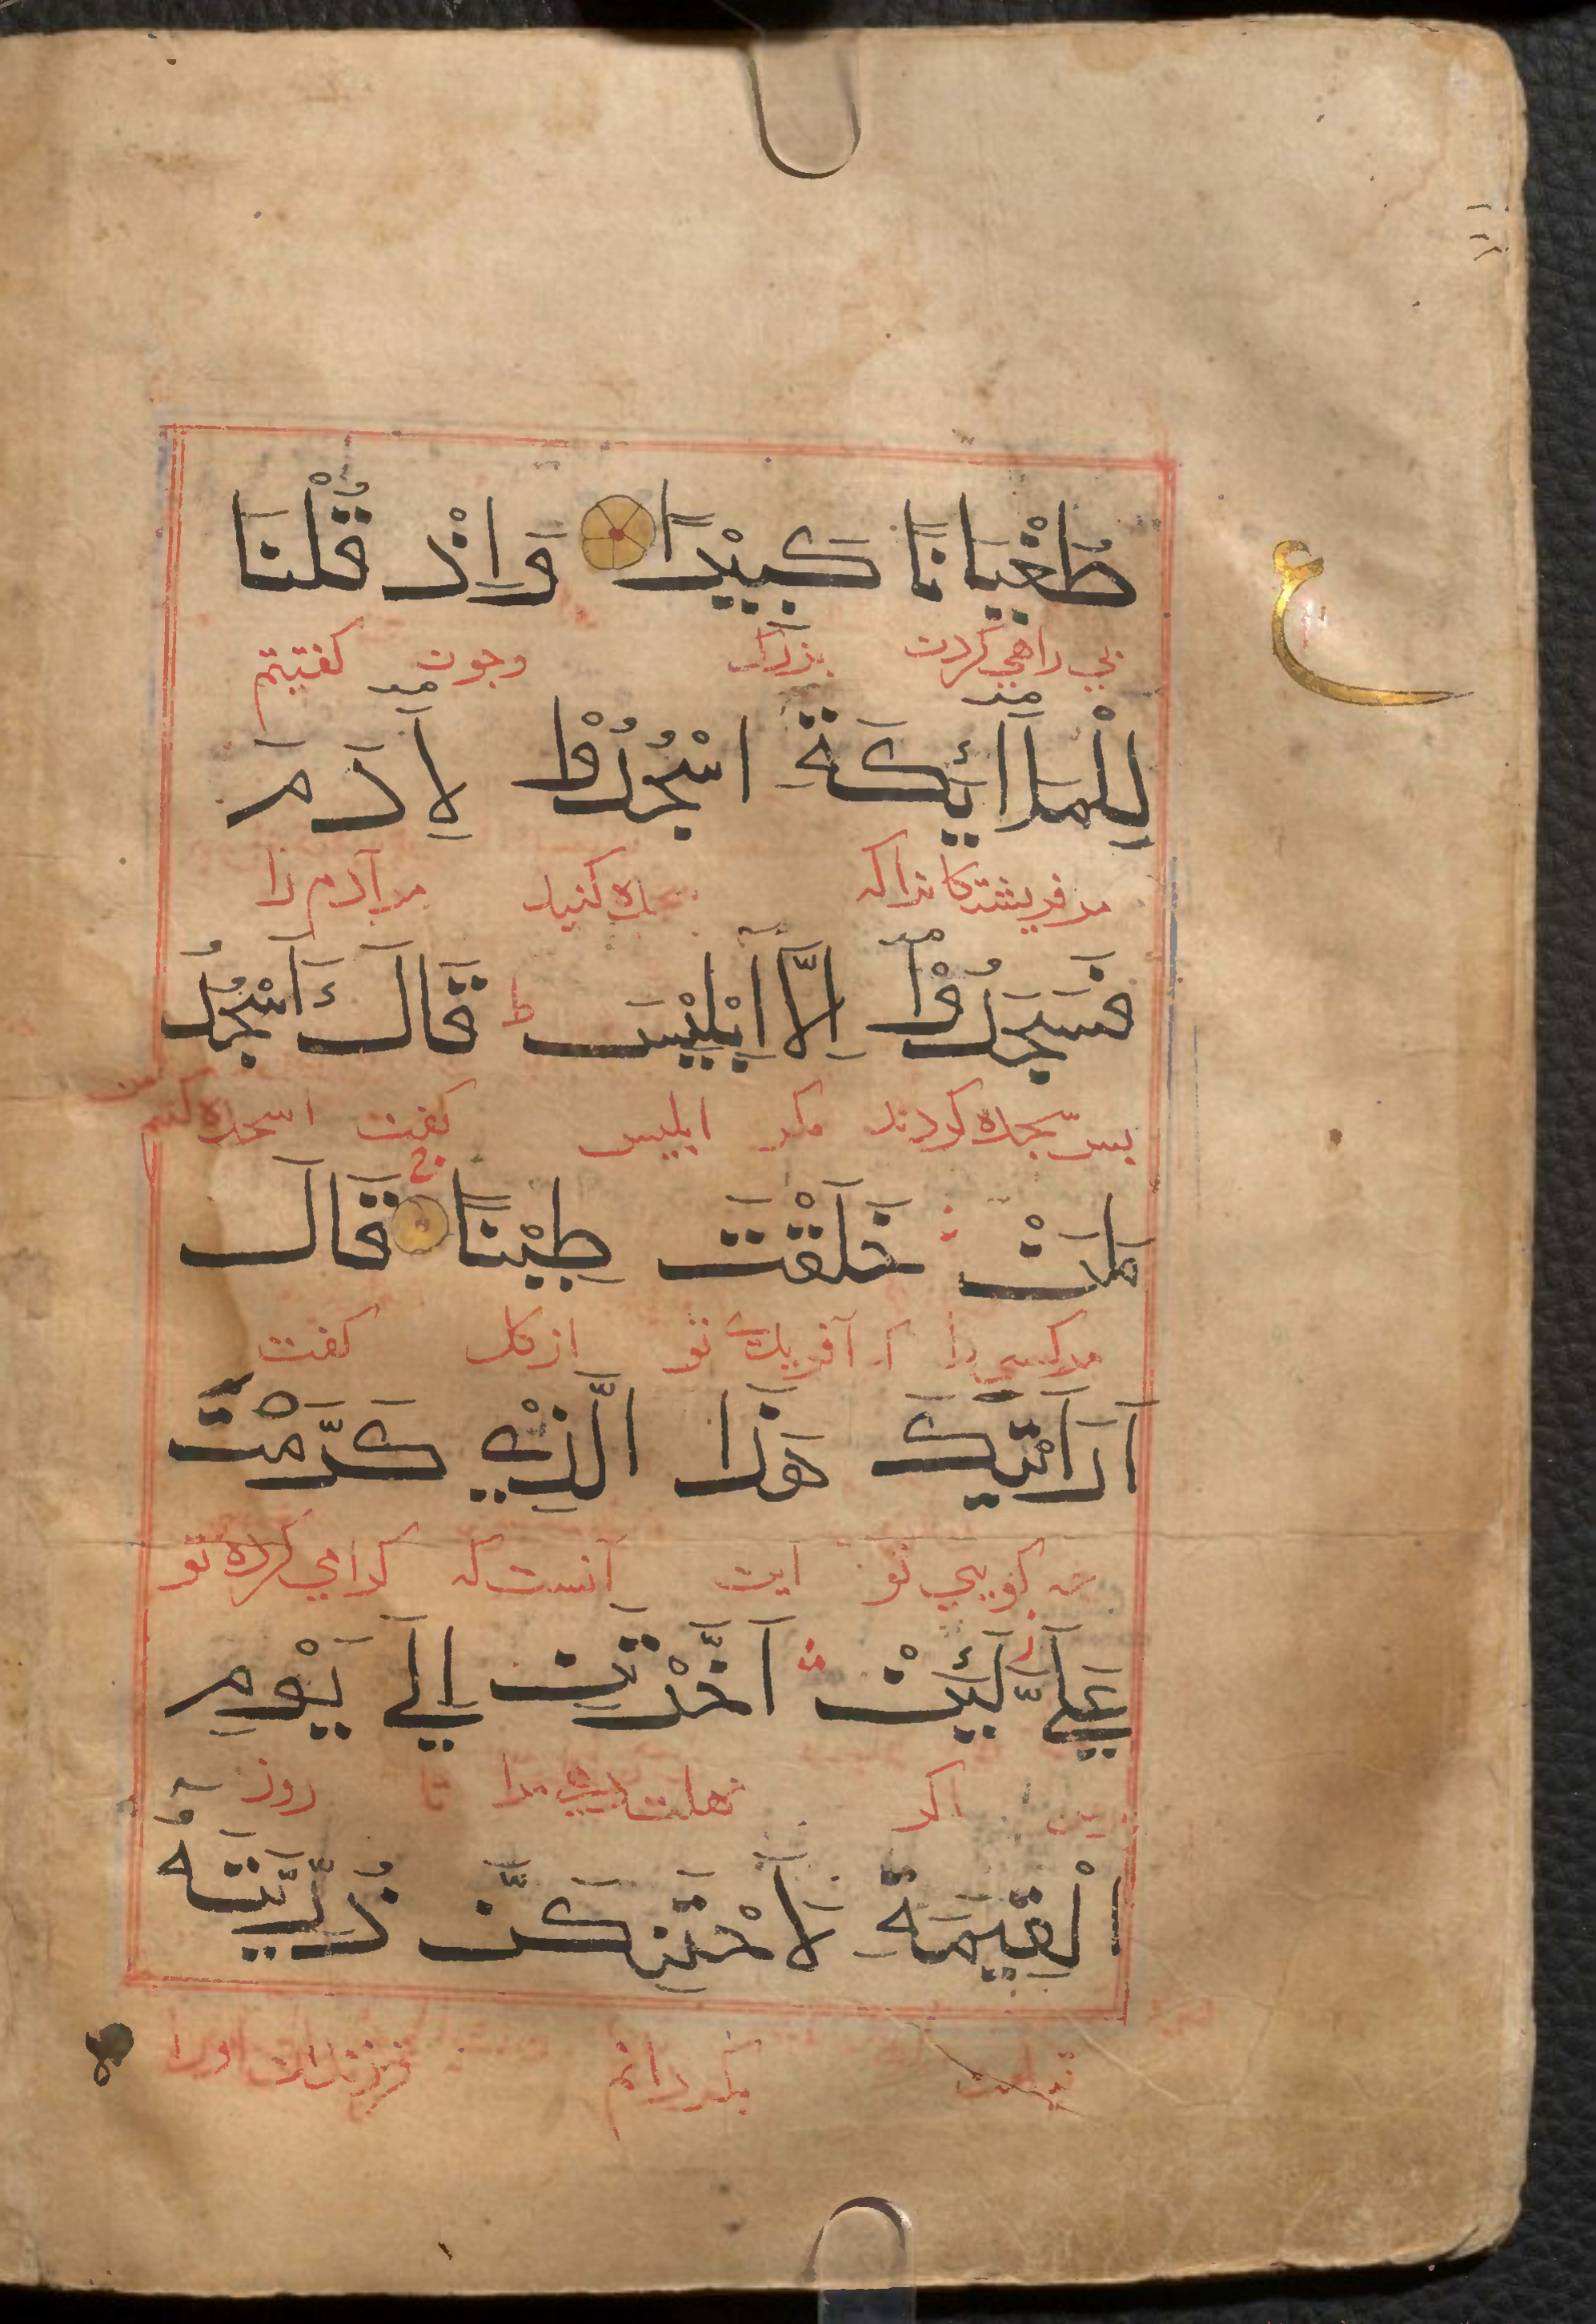 طُغْيَانًا كَبِيْرًا وَاِذْ قُلْنَا
بي راهي كردن بزرك وجون كفتيم
لِلْمَلَآئِكَةِ اسْجُدُوْا لِاَدَمَ
مر فريشتكانراكه كنيد مر آدم را
فَسَجَدُوْٓا اِلَّآ اِبْلِيْسَ ط قَالَ ءَاَسْجُدُ
بس سجده كردند مكر ابليس كفت اسجده كنم من
لِمَنْ خَلَقْتَ طِيْنًا قَالَ
مر كسي را كه آفريدي تو از كل كفت
اَرَاَيْتَكَ هَذَا الَّذِيْ كَرَّمْتَ
كويي تو اين آنست كه كرامي كرده تو
عَلَيَّ لَئِنْ اَخَّرْتَنِ اِلَي يَوْمِ
بر من اكر مهلت دهي مرا تا روز
الْقِيٰمَةِ لَاَحْتَنِكَنَّ ذُرِّيَّتَهُٓ
قيامت بكردانم فرزندان اورا
ع